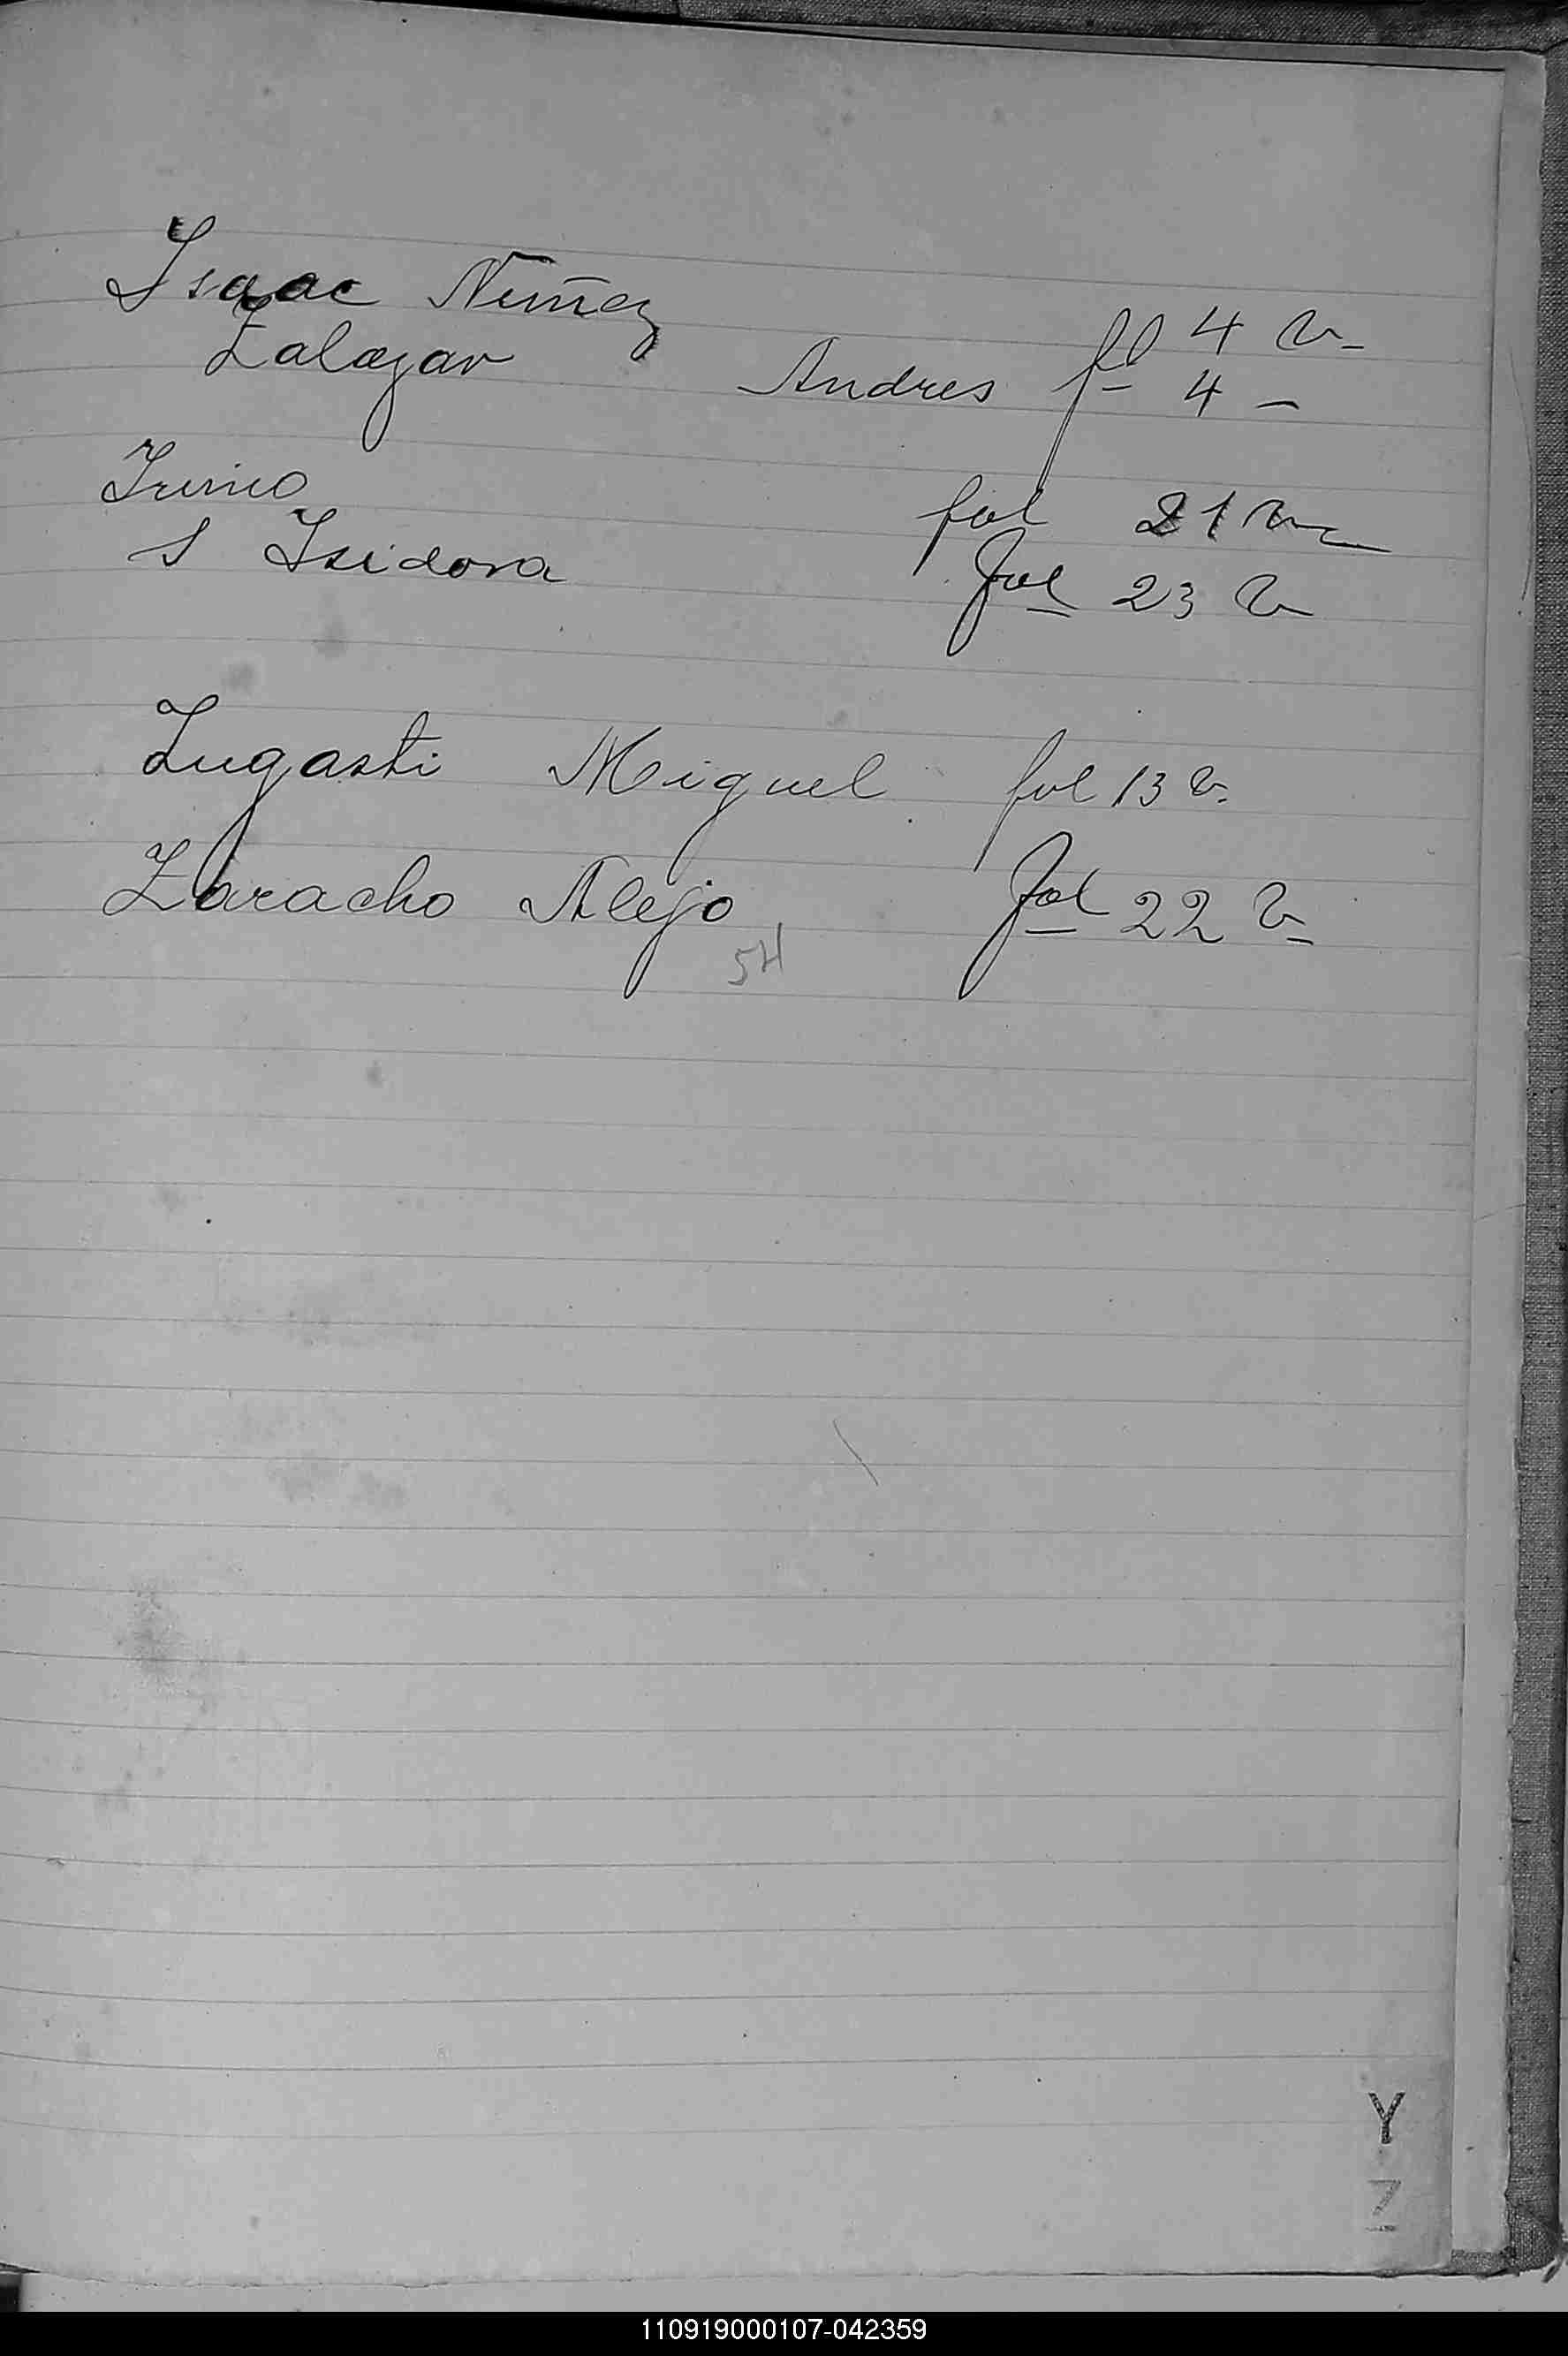 Isaac Nuñez fl 4 v-
Zalazar Andres 4 -
fol 21 v
S Isidora Fol 23 v
Zugasti Miguel fol 13 v.
Zaracho Alejo Fol 22 v-
54
Y
Z
110919000107-042359